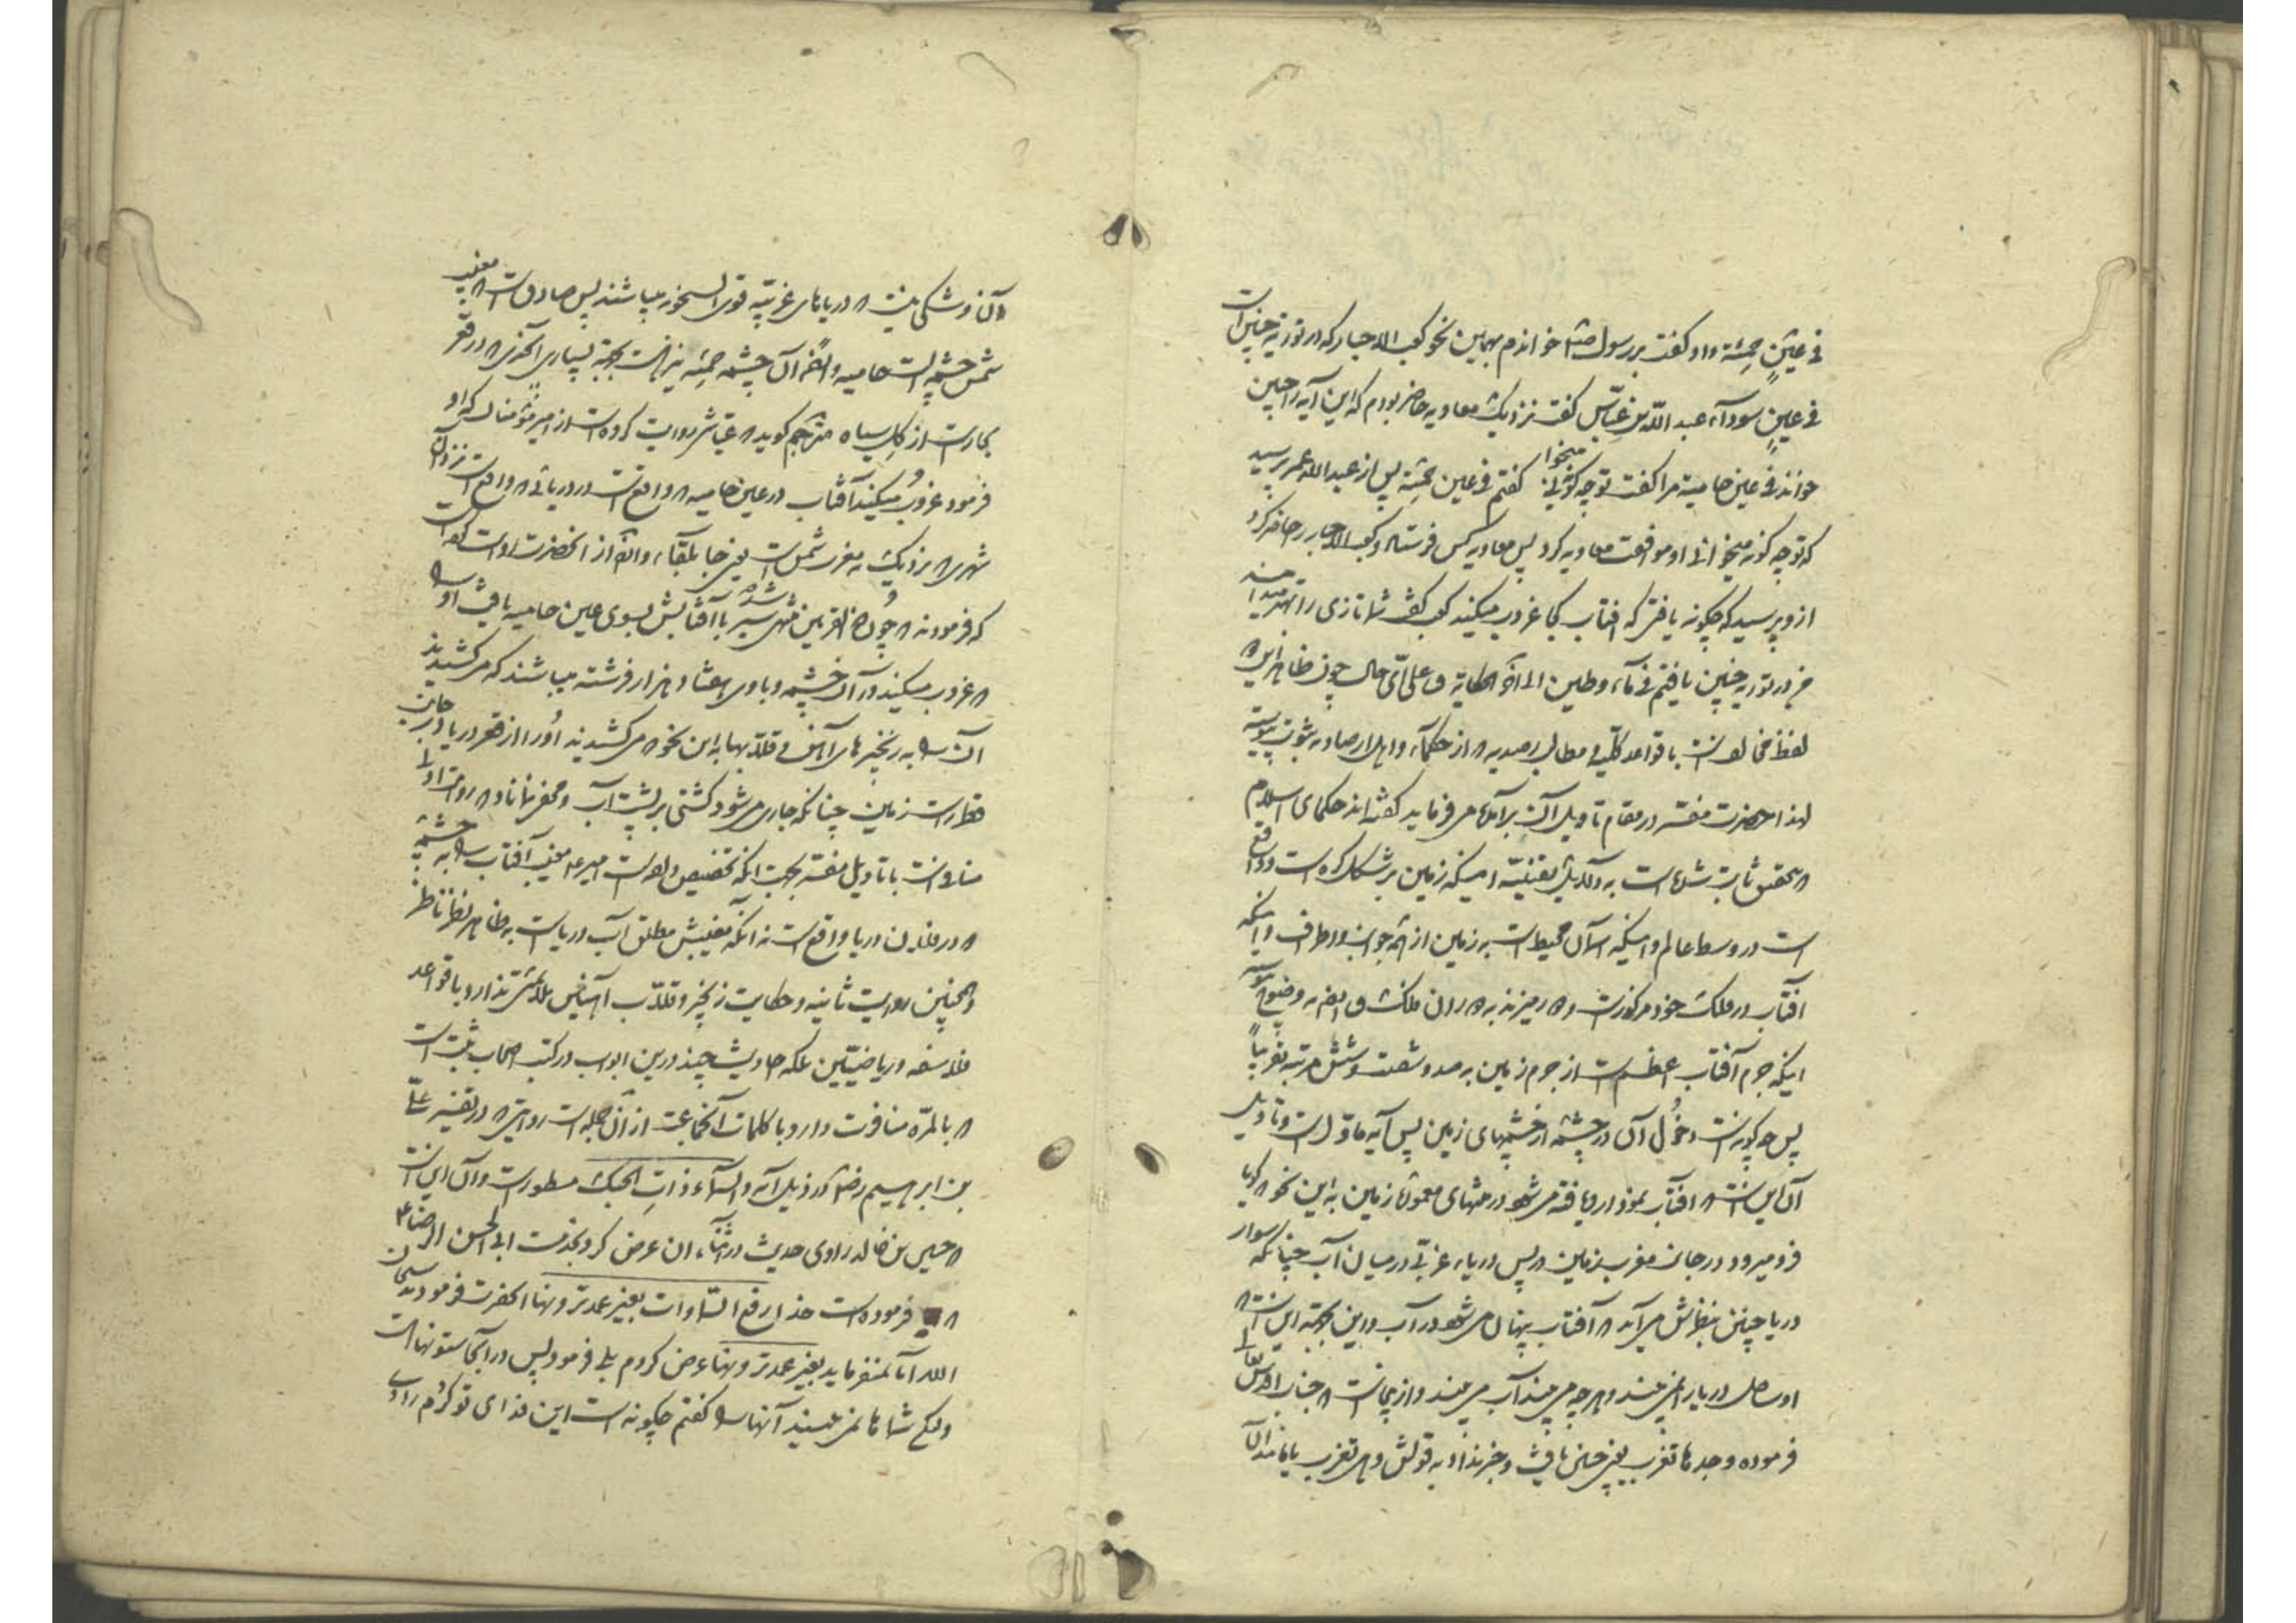 فی عینٍ حمئة و او گفت بر رسول خدا خواندم بهمین نحو کعب الاحبار که در توریة چنین است
فی عینٍ سودآء عبد الله بن عباس گفت نزدیک معاویه حاضر بودم که این آیه را چنین
خواند فی عین حامیة مرا گفت تو چه گونه میخوانی گفتم فی عین حمئة پس از عبد الله عمر پرسید
که تو چه گونه میخوانی او موافقت معاویه کرد پس معاویه کس فرستاد و کعب الاحبار را حاضر کرد
از و پرسید که چگونه یافتی که افتاب کجا غروب میکند کعب گفت شما تازی را بهتر میدانید
من در توریه چنین یافتم فی مآء و طین الی آخر الحکایة و علی ای حال چون ظاهر این
لفظ مخالف است با قواعد کلیه مطالب رصدیه از حکمآء و اهل ارصاد به ثبوت پیوسته
لهذا حضرت مفسر در مقام تأویل آن برآمده می فرماید گفته اند حکمای اسلام
بتحقیق ثابت شده است به دلایل یقینیه اینکه زمین بر شکل کره است و واقع
است در وسط عالم و اینکه آسمان محیط است به زمین از همه جوانب و اطراف و اینکه
آفتاب در فلک خود مرکوز است و
اینکه جرم آفتاب اعظم است از جرم زمین به صد و شصت و شش مرتبه تقریباً
پس چه گونه است دخول آن در چشمه از چشمهای زمین پس آیه مأول است و تأویل
آن این است افتاب نمودار یافته می شود در منتهای معموره زمین به این نحو گویا
فرو میرود در جانب مغرب زمین در پس دریای غربی در میان آب چنانکه سوار
دریا چنین بنظرش می آید آفتاب پنهان می شود در آب و این بجهة این است
او ساحل دریا را نمی بیند و هر چه می بیند آب می بیند و از اینجاست جناب اقدس تعالی
فرموده وجدها تغرب یعنی چنین یافت و خبر نداد به قولش و هی تغرب
و آن و شکی نیست در دریاهای غربیه قوی السخونه میباشند پس صادق است مغیب
شمس چشمه ایست حامیه و ایضاً آن چشمه حمئه نیز هست بجهة بسیاری در قعر
بحار است از گل سیاه مترجم گوید عیاشی روایت کرده است از امیر مؤمنان که او
فرمود غروب میکند آفتاب در عین حامیه واقع است در دریائی واقع است نزد آن
شهری نزدیک به مغرب شمس است یعنی جابلقآء و ایضاً از انحضرت است
که فرمودند چون ذوالقرنین منتهی شد سیر با آفتابش بسوی عین حامیه یافت او را
غروب میکند در آن چشمه و با وی هفتاد هزار فرشته میباشند که می کشیدند
آن را به زنجیرهای آهن و قلابها به این نحو می کشیدند او را از قعر دریا در جانب
قطر راست زمین چنانکه جاری می شود کشتی بر پشت آب و مخفی نماناد روایت اولی
منافی است با تأویل مفسر بجهت انکه تخصیص داده است امیر مغیب آفتاب را به چشمه
در فلان دریا واقع است نه انکه مغیبش مطلق آب دریاست به ظاهر نظر ناظر
و همچنین روایت ثانیه و حکایت زنجیر و قلاب آهنین ملایمتی ندارد با قواعد
فلاسفه و ریاضیین بلکه احادیث چند درین ابواب در کتب اصحاب ثبت است
بالمره منافرت دارد با کلمات آنجماعت از آن جمله است روایتی در تفسیر علی
بن ابرهیم رضی در ذیل آیه والسمآء ذات الحبک مسطور است و آن این است
حسین بن خالد راوی حدیث در اثنآء ان عرض کرد بخدمت ابی الحسن الرضا ع
فرموده است خدا رفع السماوات بغیر عمد ترونها انحضرت فرمودند سبحان
الله آیا نمیفرماید بغیر عمد ترونها عرض کردم بلی فرمود پس در آنجا ستونهاست
و لکن شماها نمی بینید آنها را گفتم چگونه است این فدای تو گردم راوی